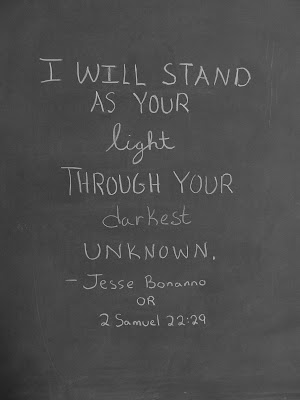 I WILL STAND
AS YOUR
light
THROUGH YOUR
darkest
UNKNOWN.
- Jesse Bonanno
OR
2 Samuel 22:29